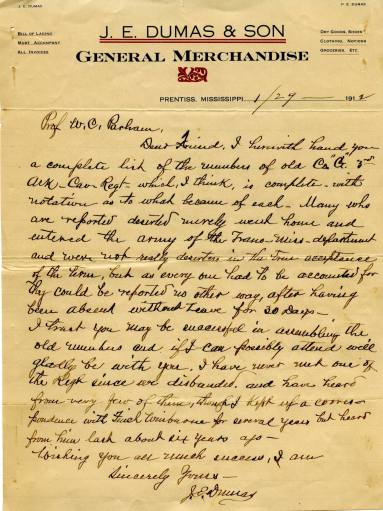 J. E. DUMAS
P. E. DUMAS
J. E. DUMAS & SON
BILL OF LADING
MUST ACCOMPANY
ALL INVOICES
DRY GOODS, SHOES
CLOTHING, NOTIONS
GROCERIES, ETC.
GENERAL MERCHANDISE
PRENTISS, MISSISSIPPI 1/29 — 1912
Prof W. C. Parham,
Dear Friend, I herewith hand you
a complete list of the members of old Co "G" 3rd
Ark - Cav - Regt - which, I think, is complete - with
notation as to what became of each - Many who
are reported deserted merely went home and
entered the army of the Trans-Miss - department
and were not really deserters in the true acceptance
of the term, but as every one had to be accounted for
they could be reported no other way, after having
been absent without leave for 30 days -
I trust you may be successful in assembling the
old members and if I can possibly attend will
gladly be with you. I have never met one of
the Regt since we disbanded, and have heard
from very few of them, though I kept up a corres-
pondence with Fitch Winburne for several years but heard
from him last about six years ago -
Wishing you all much success, I am
Sincerely Yours -
J. E. Dumas